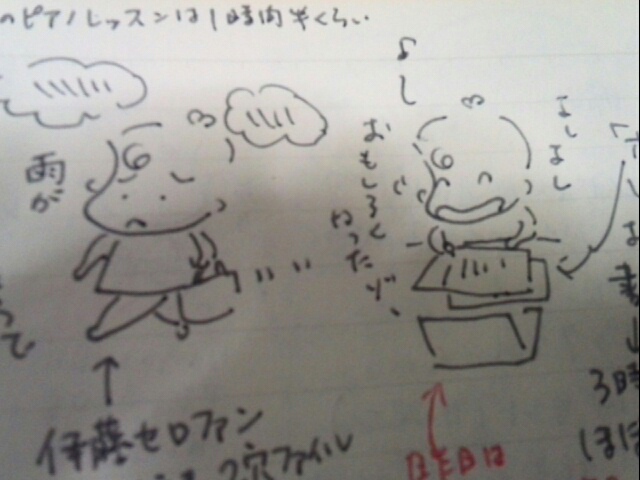 のピアノレッスンは1時間半くらい
雨が
よし
おもしろく
なったゾ、
よしよし
って
伊藤セロファン
2穴ファイル
昨日は
3時
ほぼ